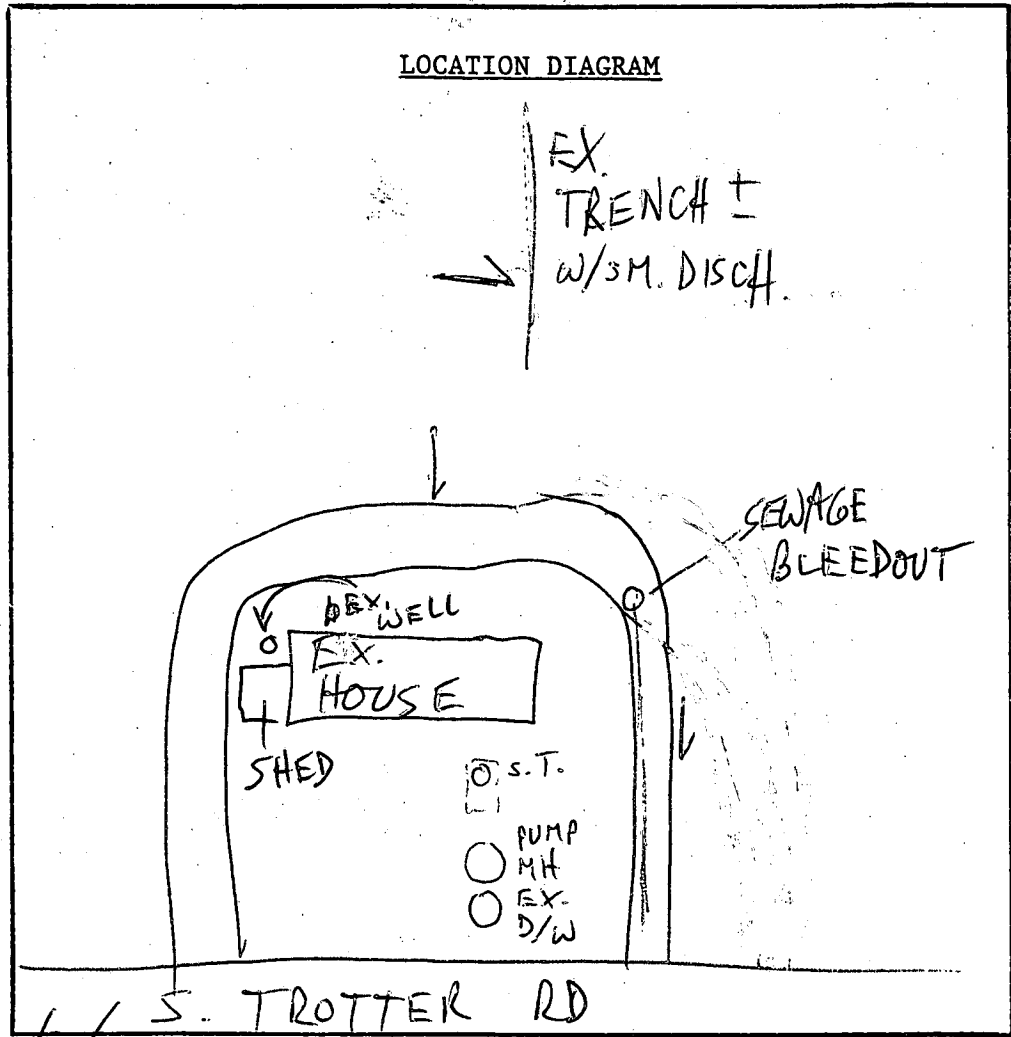 LOCATION DIAGRAM
EX.
TRENCH ±
W/SM. DISCH.
SEWAGE
BLEEDOUT
EX. WELL
EX.
HOUSE
SHED
S.T.
PUMP
MH
EX.
D/W
S. TROTTER RD